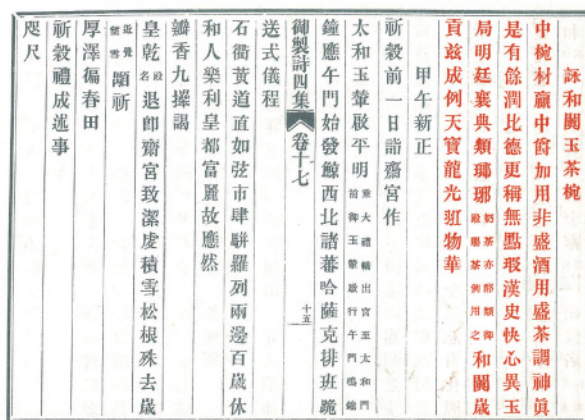 詠和闐玉茶椀
中椀材贏中加用非盛酒用盛茶調神眞
是有餘潤比德更稱無點瑕漢史快心異玉
局明廷襄典類瑯琊奶茶亦酪類御殿賜茶例用之和闐歲
貢茲成例天寶龍光物華
甲午新正
祈穀前一日詣齋宮作
太和玉輦啟平明乘大禮轎出宮至太和門前御玉輦啟行午門鳴鐘
鐘應午門始發鯨西北諸蕃哈薩克排班跪
御製詩四集 卷十七 十五
送式儀程
石衢黃道直如弦市肆駢羅列兩邊百歲休
和人樂利皇都富麗故應然
瓣香九謁
皇乾殿名退即齋宮致潔虔積雪松根殊去歲
顒祈
厚澤徧春田
祈穀禮成述事
咫尺